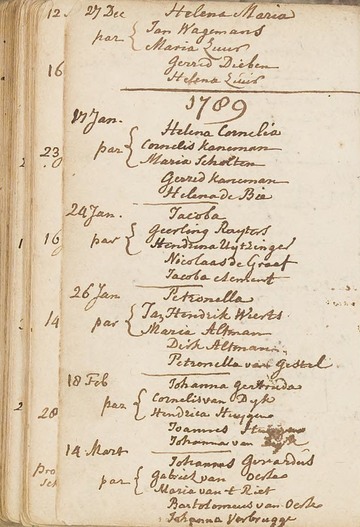 12. 27 Dec Helena Maria
par Jan Wagemans
Maria Luur
Gerred Dieben
16 Helena Luur
1789
17 Jan. Helena Cornelia
par Cornelis Kaneman
23 Maria Scholten
Gerred Kaneman
Helena de Bie
24 Jan. Jacoba
par Geerling Ruyters
16 Hendrina Uytzinger
Nicolaas de Graaf
Jacoba
26 Jan Petronella
par Jan Hendrik Weerts
14 Maria Altman
Dirk Altman
Petronella van Gestel
18 Feb Johanna Gertruda
par Cornelis van Dyk
28 Hendrica
Joannes
Johanna van
14 Mart Johannes Gerardus
par Gabriel van
Maria van 't Riet
Bartolomeus van
Johanna Verbrugge